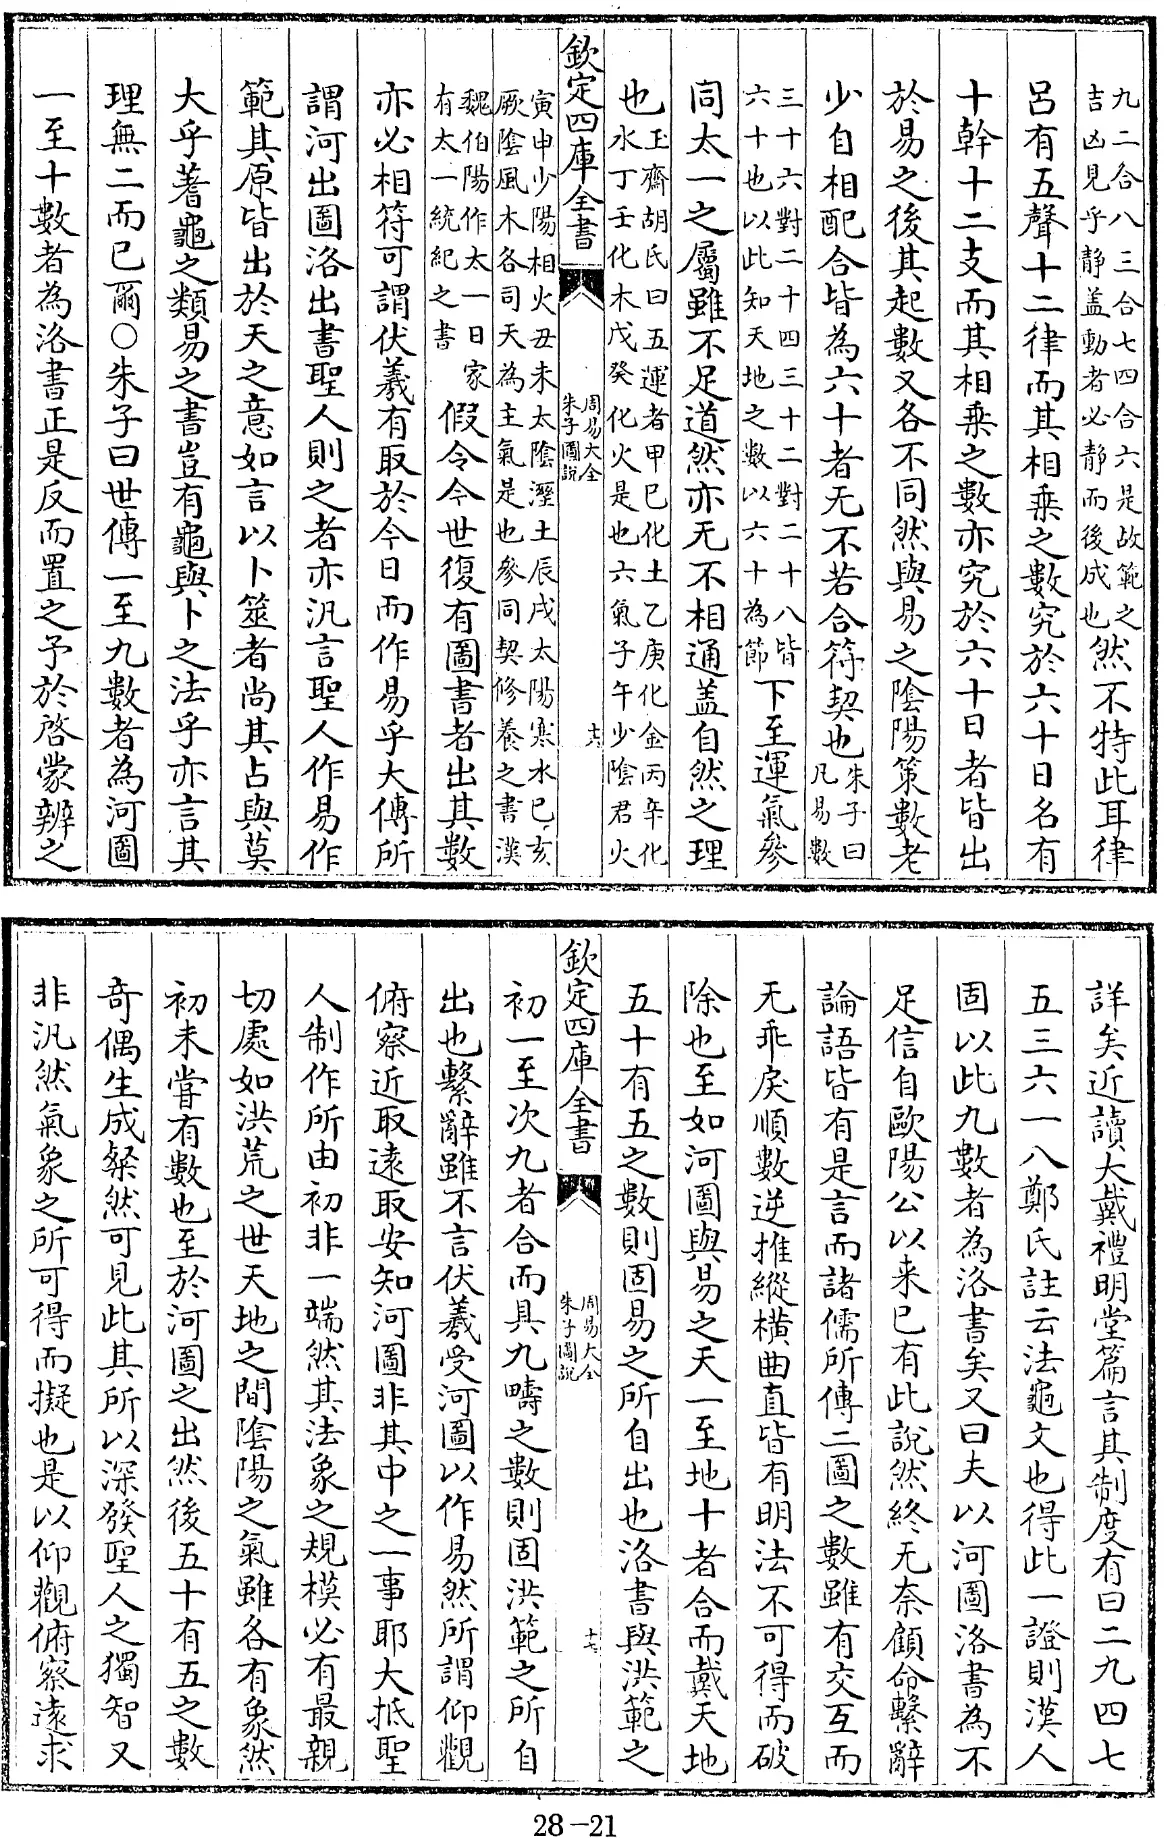 九二合八三合七四合六是故範之吉凶見乎靜盖動者必靜而後成也然不特此耳律
呂有五聲十二律而其相乘之數究於六十日名有
十幹十二支而其相乘之數亦究於六十日者皆出
於易之後其起數又各不同然與易之陰陽策數老
少自相配合皆為六十者无不若合符契也朱子曰凡易數
三十六對二十四三十二對二十八皆六十也以此知天地之數以六十為節下至運氣參
同太一之屬雖不足道然亦无不相通盖自然之理
也玉齋胡氏曰五運者甲己化土乙庚化金丙辛化水丁壬化木戊癸化火是也六氣子午少陰君火
欽定四庫全書 周易大全朱子圖說 十六
寅申少陽相火丑未太陰溼土辰戌太陽寒水巳亥厥陰風木各司天為主氣是也參同契修養之書漢
魏伯陽作太一日家有太一統紀之書假令今世復有圖書者出其數
亦必相符可謂伏羲有取於今日而作易乎大傳所
謂河出圖洛出書聖人則之者亦汎言聖人作易作
範其原皆出於天之意如言以卜筮者尚其占與莫
大乎蓍龜之類易之書豈有龜與卜之法乎亦言其
理無二而已爾○朱子曰世傳一至九數者為河圖
一至十數者為洛書正是反而置之予於啓蒙辨之
詳矣近讀大戴禮明堂篇言其制度有曰二九四七
五三六一八鄭氏註云法龜文也得此一證則漢人
固以此九數者為洛書矣又曰夫以河圖洛書為不
足信自歐陽公以来已有此說然終无奈顧命繫辭
論語皆有是言而諸儒所傳二圖之數雖有交互而
无乖戾順數逆推縱橫曲直皆有明法不可得而破
除也至如河圖與易之天一至地十者合而戴天地
五十有五之數則固易之所自出也洛書與洪範之
欽定四庫全書 周易大全朱子圖說 十七
初一至次九者合而具九疇之數則固洪範之所自
出也繫辭雖不言伏羲受河圖以作易然所謂仰觀
俯察近取遠取安知河圖非其中之一事耶大抵聖
人制作所由初非一端然其法象之規模必有最親
切處如洪荒之世天地之間陰陽之氣雖各有象然
初未嘗有數也至於河圖之出然後五十有五之數
奇偶生成粲然可見此其所以深發聖人之獨智又
非汎然氣象之所可得而擬也是以仰觀俯察遠求
28-21